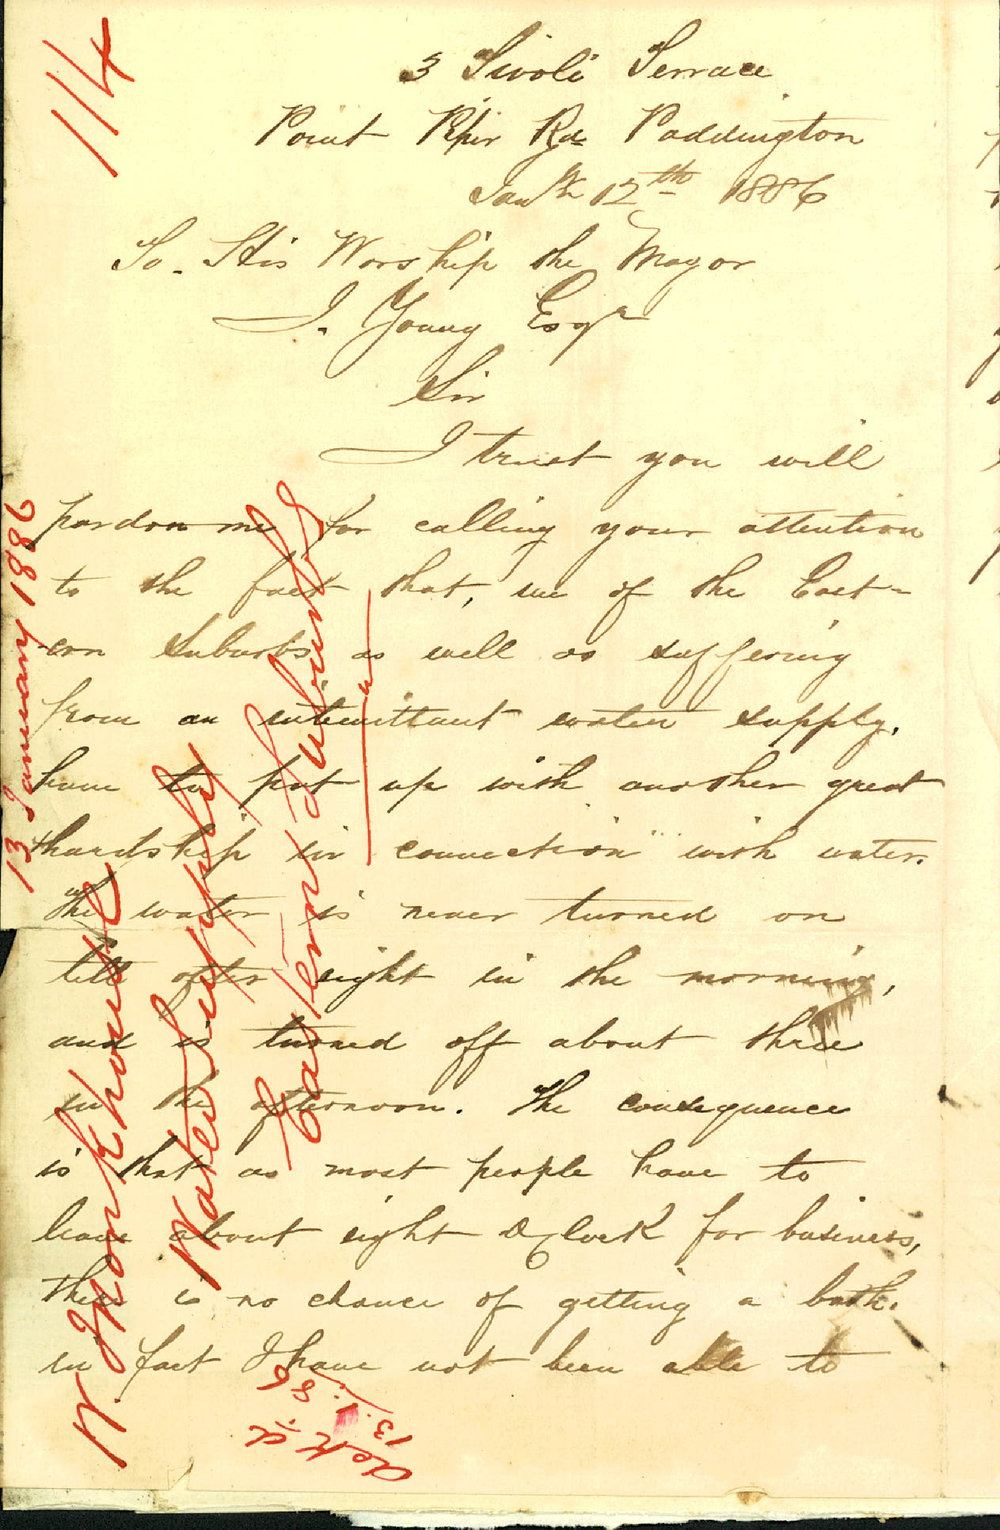 114
3 Tivoli Terrace
Point Piper Rd Paddington
Jany 12th 1886
To. His Worship the Mayor
J. Young Esqr
Sir
I trust you will
pardon me for calling your attention
to the fact that, we of the East-
ern Suburbs as well as suffering
from an intermittant water supply.
have to put up with another great
hardship in connection with water.
The water is never turned on
till after eight in the morning,
and is turned off about three
in the afternoon. The consequence
is that as most people have to
leave about eight O'Clock for business,
there is no chance of getting a bath.
in fact I have not been able to
13 January 1886
W. Monkhouse
Water Supply
Eastern Suburbs
Ack'd
13.1.86